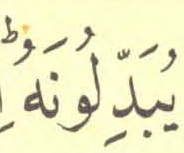 يُبَدِّلُونَهُ ؕ